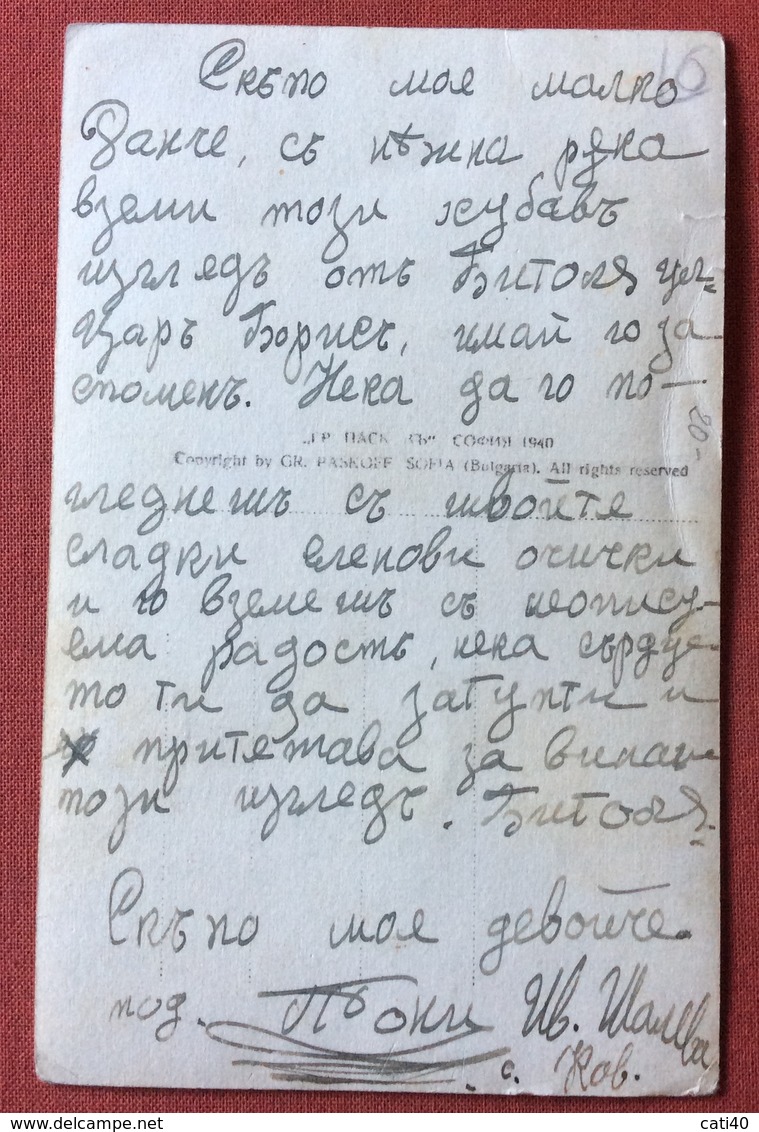 Скѫпо мое малко
16
Данче, съ нѣжна рѫка
вземи този хубавъ
изгледъ отъ Битоля
Царъ Борисъ, имай го за
споменъ. Нека да го по-
20-
„ГР. ПАСК ВЪ" СОФИЯ 1940
Copyright by GR. PASKOFF SOFIA (Bulgaria). All rights reserved
гледнешъ съ твойте
сладки еленови очички
и го вземешъ съ неопису-
ема радость, нека сърдце-
то ти да затупти и
притежава за винаги
този изгледъ. Битоля.
Скъпо мое девойче.
под. Ив. Шалева
с. Ков.
cati40